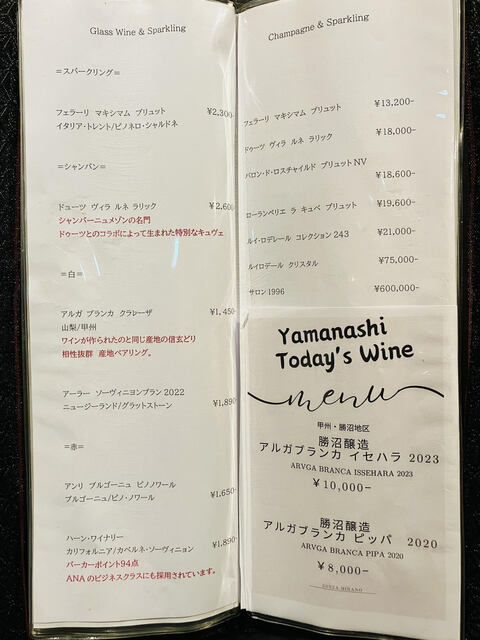 Glass Wine & Sparkling
=スパークリング=
フェラーリ マキシマム ブリュット ¥2,300-
イタリア・トレント/ピノネロ・シャルドネ
=シャンパン=
ドューツ ヴィラ ルネ ラリック ¥2,600
シャンパーニュメゾンの名門
ドゥーツとのコラボによって生まれた特別なキュヴェ
=白=
アルガ ブランカ クラレーザ ¥1,450
山梨/甲州
ワインが作られたのと同じ産地の信玄どり
相性抜群 産地ペアリング。
アーラー ソーヴィニヨンブラン2022
ニュージーランド/グラットストーン ¥1,890
=赤=
アンリ ブルゴーニュ ピノノワール
ブルゴーニュ/ピノ・ノワール ¥1,650-
ハーン・ワイナリー
カリフォルニア/カベルネ・ソーヴィニョン ¥1,890-
パーカーポイント94点
ANAのビジネスクラスにも採用されています。
Champagne & Sparkling
フェラーリ マキシマム ブリュット ¥13,200-
ドゥーツ ヴィラ ルネ ラリック ¥18,000-
バロン・ド・ロスチャイルド ブリュットNV ¥18,600-
ローランペリエ ラ キュベ ブリュット ¥19,600-
ルイ・ロデレール コレクション 243 ¥21,000-
ルイロデール クリスタル ¥75,000-
サロン 1996 ¥600,000-
Yamanashi
Today's Wine
menu
甲州・勝沼地区
勝沼醸造
アルガブランカ イセハラ 2023
ARVGA BRANCA ISSEHARA 2023
¥10,000-
勝沼醸造
アルガブランカ ピッパ 2020
ARVGA BRANCA PIPA 2020
¥8,000-